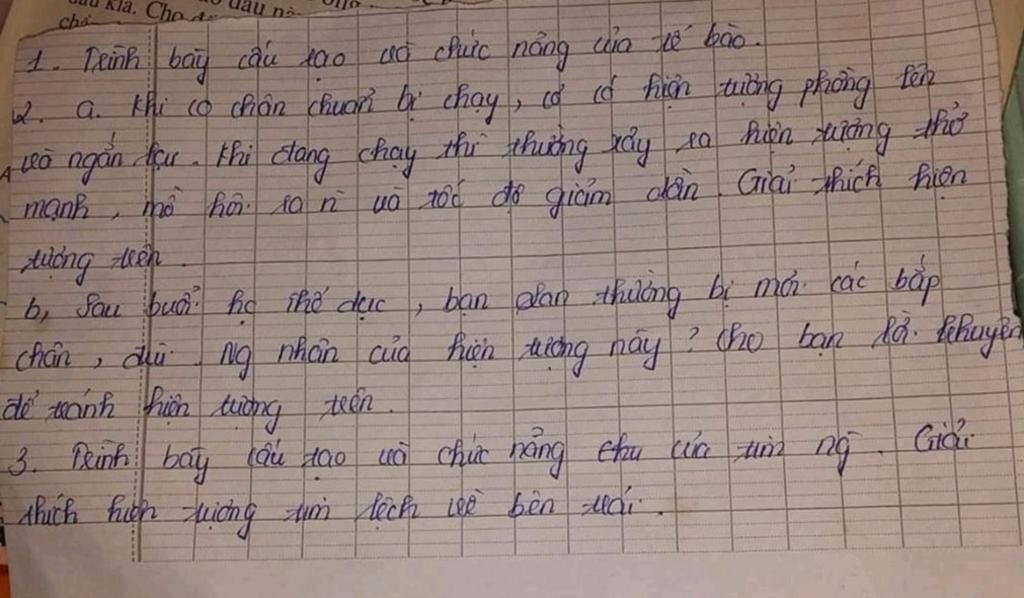 sau kia. Cho
dấu
chấ
1. Trình bày cấu tạo và chức năng của tế bào.
2. a. Khi cơ chân chuẩn bị chạy, cơ có hiện tượng phồng lên
và ngắn lại. Khi đang chạy thì thường xảy ra hiện tượng thở
mạnh, mồ hôi ra n và tốc độ giảm dần. Giải thích hiện
tượng trên.
b, Sau buổi họ thể dục, bạn thường bị mỏi các bắp
chân, ng nhân của hiện tượng này? Cho bạn lời khuyên
để tránh hiện tượng trên.
3. Trình bày cấu tạo và chức năng chu của tim ng. Giải
thích hiện tượng tim lệch về bên trái.